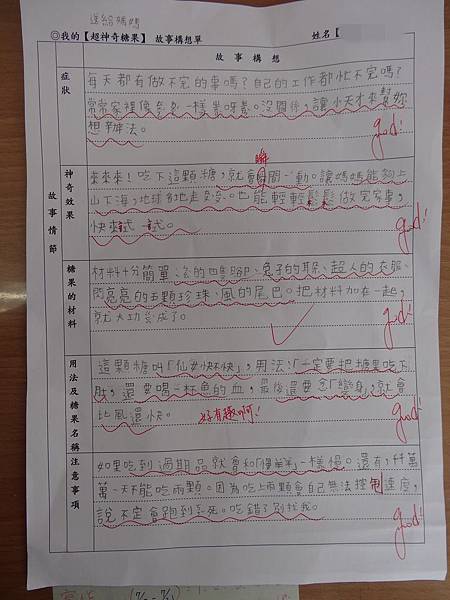 送給媽媽
◎我的【超神奇糖果】 故事構想單 姓名【
故事構想
故事情節
症狀
每天都有做不完的事嗎?自己的工作都忙不完嗎?
常常家裡像
一樣
呀。沒關係,讓小天才來幫妳
想辦法。
good!
神奇效果
瞬
來來來!吃下這顆糖,就會瞬間一動。讓媽媽能夠上
山下海,地球各地走
。也能輕輕鬆鬆做完家事,
快來試一試。
good!
糖果的材料
材料十分簡單:
的四隻腳、兔子的耳朵、超人的衣服、
閃亮亮的五顆珍珠、風的尾巴。把材料加在一起,
就大功告成了。
good!
用法及糖果名稱
這顆糖叫「仙女快快」,用法:「一定要把糖果吃下
肚,還要喝一杯魚的血,最後還要念「變身」,就會
比風還快。
好有趣啊!
good!
注意事項
如果吃到過期品就會和「慢
」一樣慢。還有,千萬
萬一天不能吃兩顆。因為吃上兩顆會自己無法控制速度,
說不定會跑到
死。吃錯了別找我。
good!